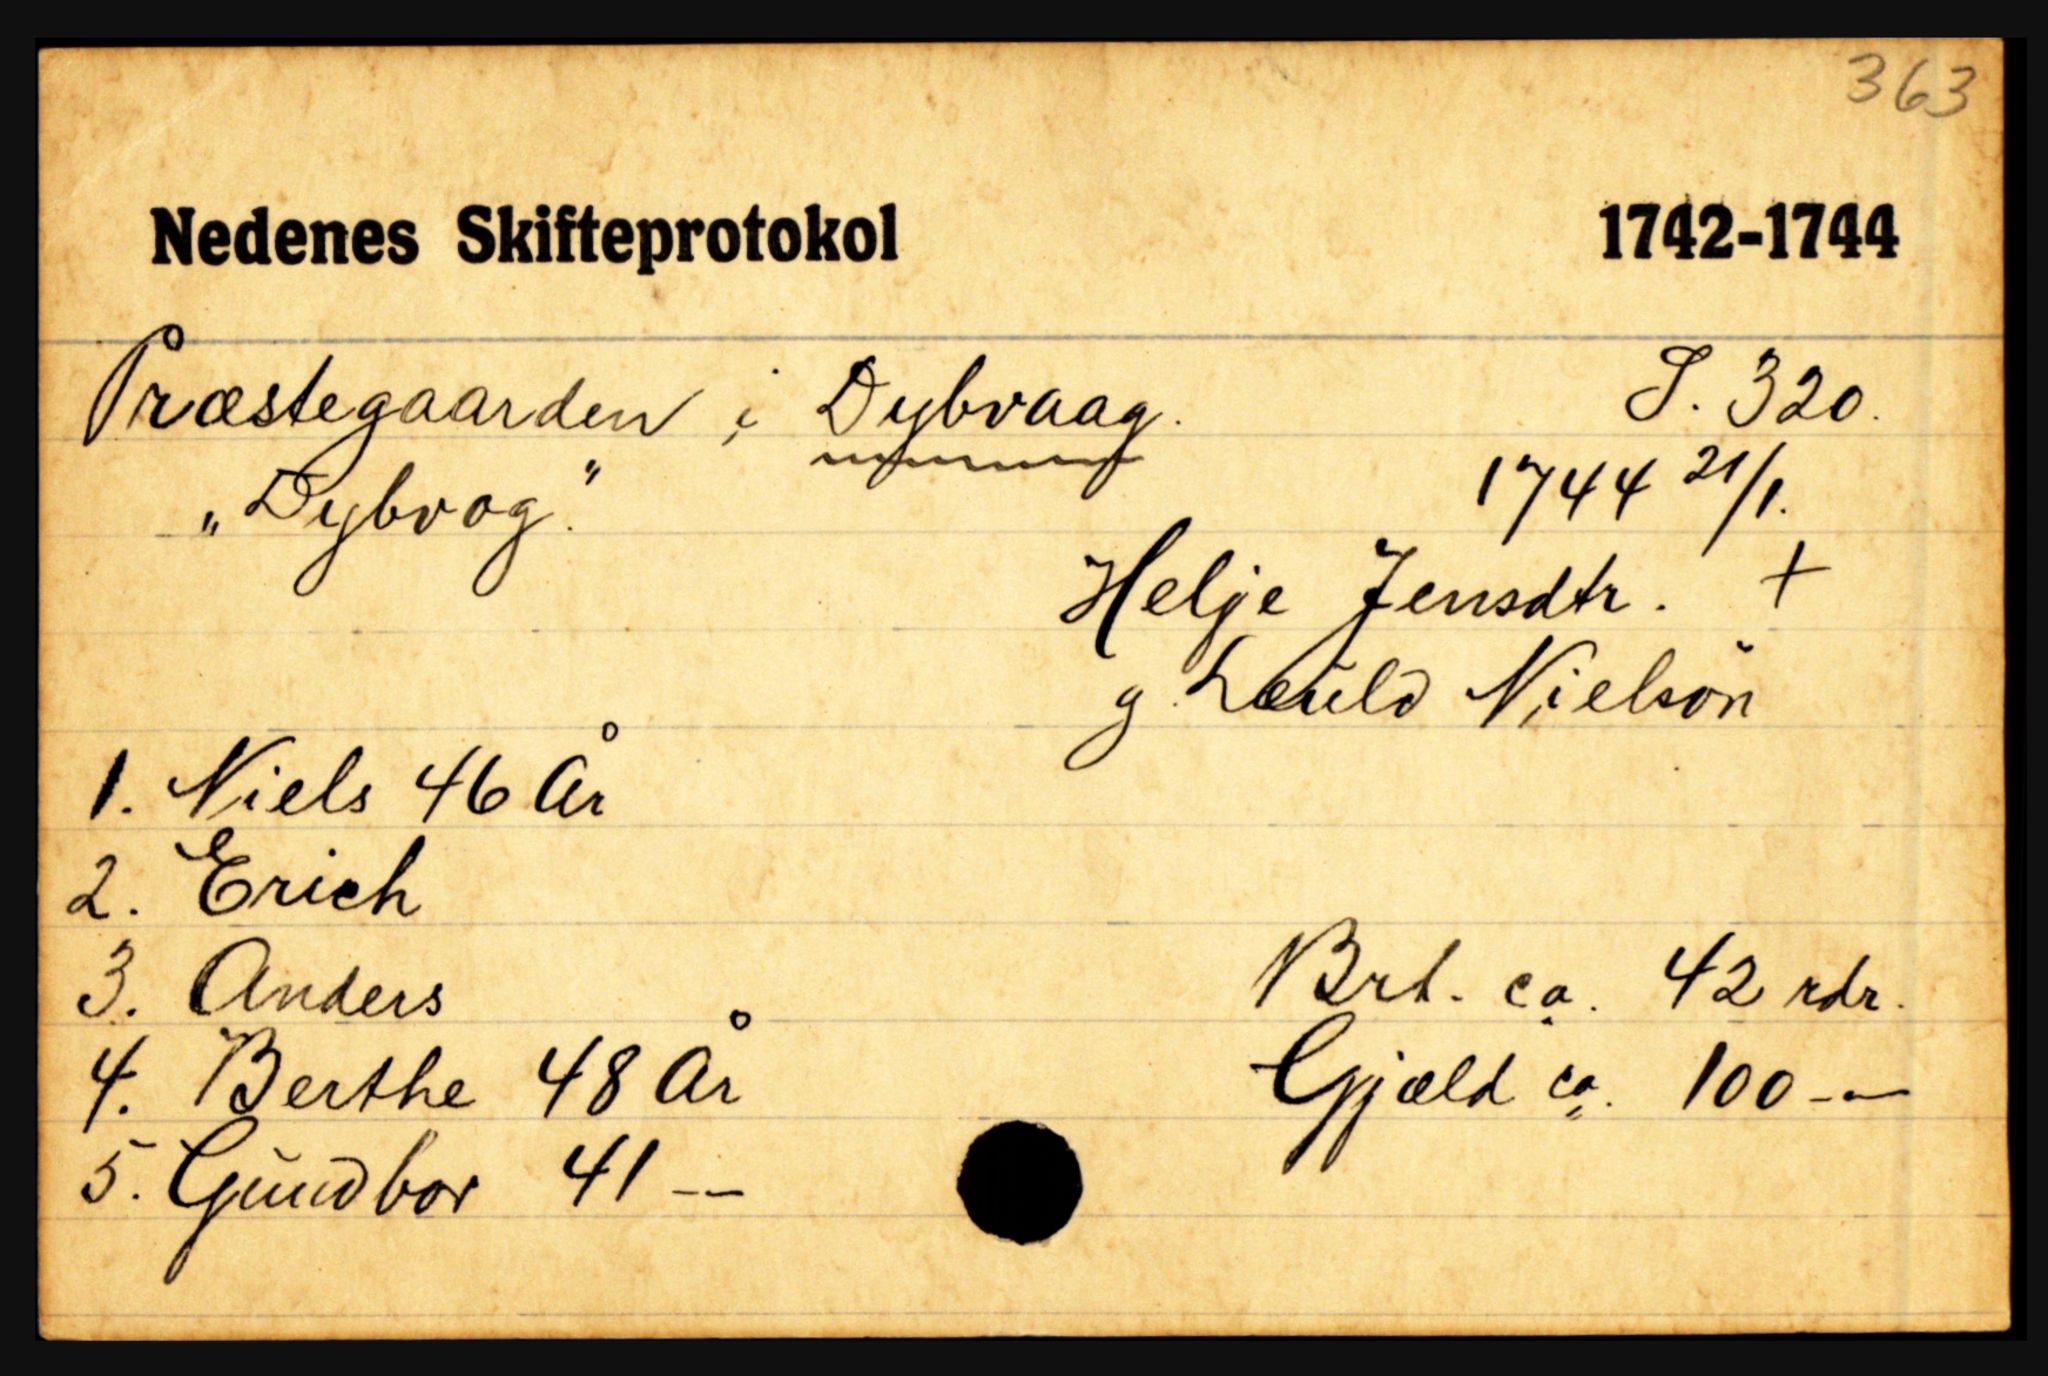 363
Nedenes Skifteprotokol 1742-1744
Præstegaarden i Dybvaag. S. 320.
„Dybvog.“ 1744 21/1.
Helje Jensdtr. +
g. Leuld Nielsön
1. Niels 46 År
2. Erich
3. Anders Brt. ca. 42 rdr.
4. Berthe 48 År Gjæld ca. 100 —
5. Gundbor 41 —